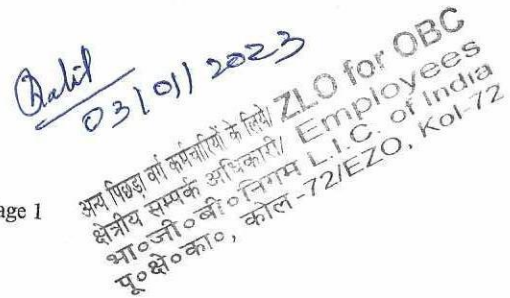 03/01/2023
अन्य पिछड़ा वर्ग कर्मचारियों के लिये/ ZLO for OBC
क्षेत्रीय सम्पर्क अधिकारी/ Employees
भा०जी०बी०निगम L.I.C. of India
पू०क्षे०का०, कोल-72/EZO, Kol-72
age 1